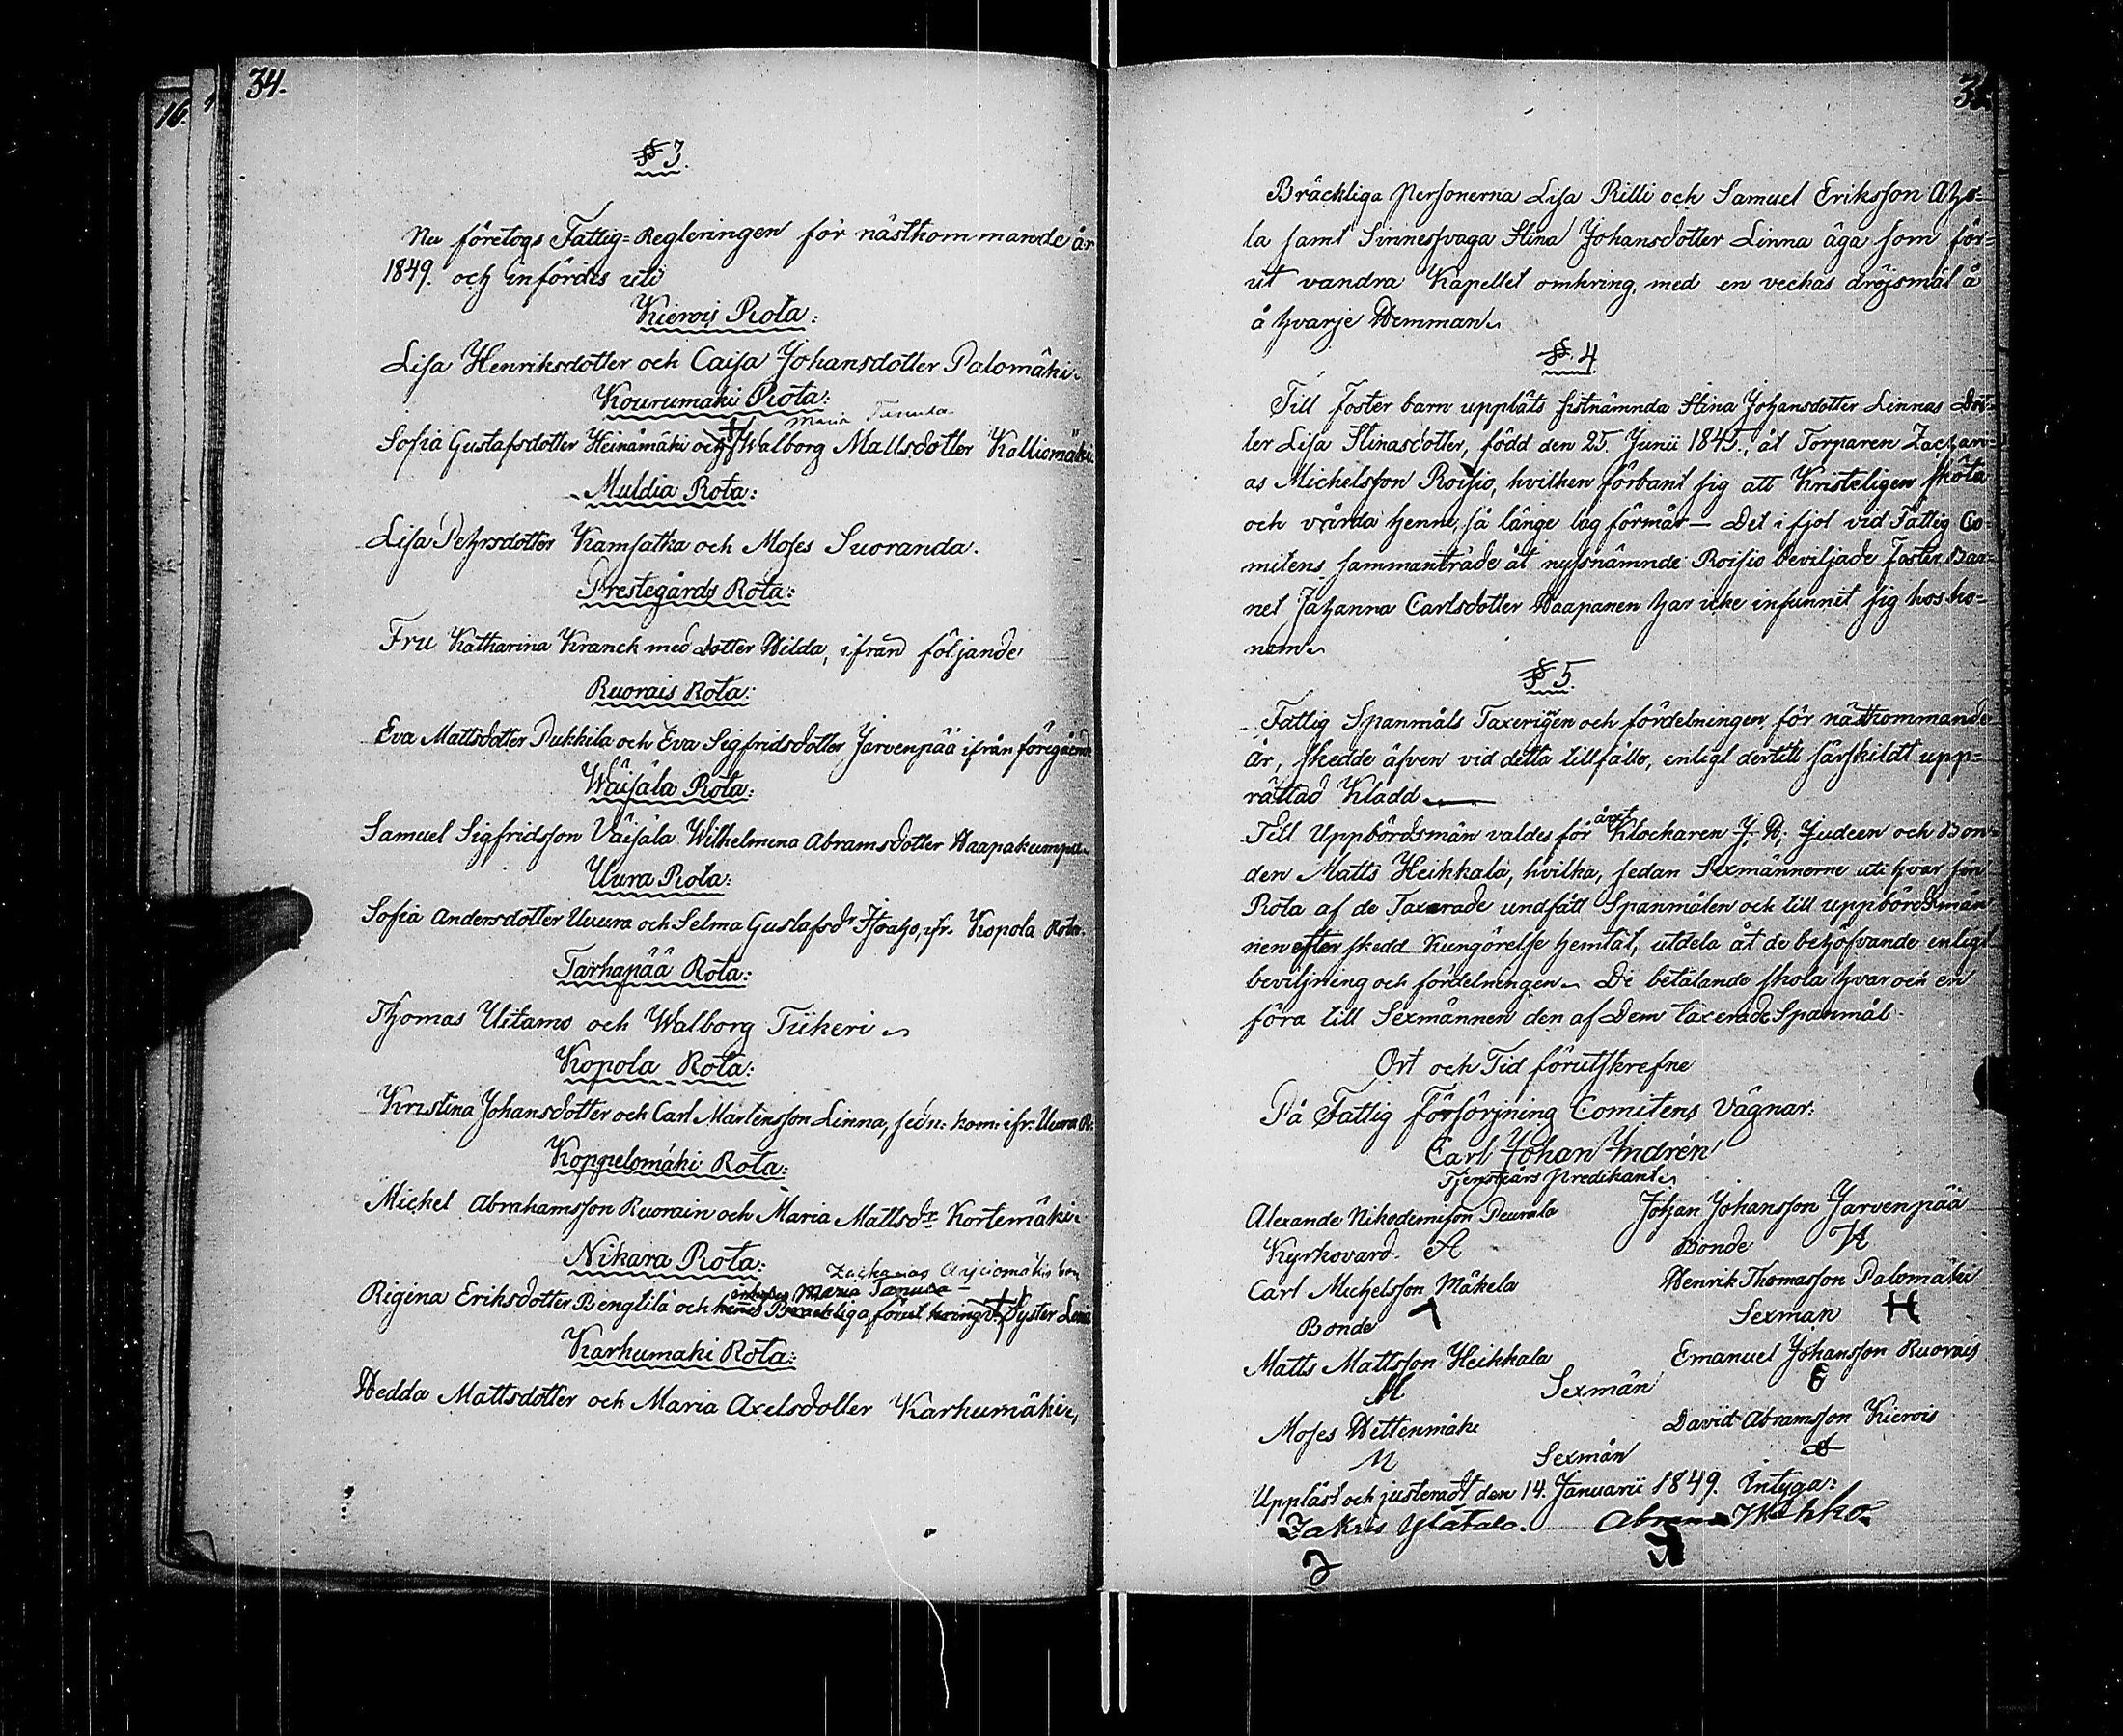 34.
16.
§ 3.
Nu företogs Fattig-Regleringen för nästkommande år
1849. och infördes uti
Kierois Rota:
Lisa Henriksdotter och Caisa Johansdotter Palomäki.
Kourumäki Rota:
Maria Tanula
Sofia Gustafsdotter Heinämäki och Walborg Mattsdotter Kalliomäki.
Muldia Rota:
Lisa Pehrsdotter Kamsatka och Moses Suoranda.
Prestegårds Rota:
Fru Katharina Kranck med dotter Hilda, ifrån följande
Ruorais Rota:
Eva Mattsdotter Pukkila och Eva Sigfridsdotter Jarvenpää ifrån föregående
Wäisälä Rota:
Samuel Sigfridsson Väisäla Wilhelmena Abramsdotter Haapakumpu.
Uura Rota:
Sofia Andersdotter Uuura och Selma Gustafsdr Isoaho, ifr. Kopola Rota.
Tarhapää Rota:
Thomas Uitamo och Walborg Tiikeri.
Kopola Rota:
Kristina Johansdotter och Carl Martensson Linna, sedn: kom: ifr: Uura R:
Koppelomäki Rota:
Mickel Abrahamsson Ruorain och Maria Mattsdr Kortemäki.
Nikara Rota:
Zacharias
Maria Tanula
Rigina Eriksdotter Bengtilä och henes Bräckliga, förut Syster Lena
Karhumäki Rota:
Hedda Mattsdotter och Maria Axelsdotter Karhumäki,
Bräckliga Personerna Lisa Rilli och Samuel Eriksson Aho-
la samt Sinnessvaga Stina Johansdotter Linna äga som för-
ut vandra Kapellet omkring, med en veckas dröjsmål å
å hvarje Hemman.
§. 4.
Till foster barn uppläts sistnämnda Stina Johansdotter Linnas Dot-
ter Lisa Stinasdotter, född den 25. Junii 1845., åt Torparen Zachari-
as Michelsson Roisio, hvilken förbant sig att Kristeligen sköta
och vårda henne, så länge lag förmår — Det i fjol vid Fattig Co-
mitens sammanträde åt nyssnämnde Roisio beviljade foster Bar-
net Johanna Carlsdotter Haapanen har icke infunnit sig hos ho-
nom.
§ 5.
Fattig Spanmåls Taxerigen och fördelningen för nästkommande
år, skedde äfven vid detta tillfälle, enligt dertill särskildt upp-
rättad Kladd.
året
Till Uppbördsmän valdes för Klockaren J. R. Judeen och Bon-
den Matts Heikkala, hvilka, sedan Sexmännerne uti hvar sin
Rota af de Taxerade undfått Spanmålen ock till uppbördsmän
nen efter skedd Kungörelse hemtat, utdela åt de behöfvande enligt
beviljning och fördelningen. De betalande skola hvar och en
föra till Sexmännen den af Dem taxerade Spanmål.
Ort och Tid förutskrefne
På Fattig försörjning Comitens Vägnar:
Carl Johan Indrén
Tjenstårs Predikant.
Alexande Nikodemisson Peurala Johan Johansson Jarvenpää
Kyrkovard. A Bonde
Carl Michelsson Mäkela Henrik Thomasson Palomäki
Bonde Sexman H
Matts Mattsson Heikkala Emanuel Johansson Ruorais
M Sexmän E
Moses Hettenmäki David Abramsson Kierois
M Sexmän
Uppläst och justeradt den 14. Januarii 1849. Intyga:
Zakris Ylätalo.